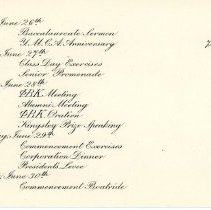 June 26th
Baccalaureate Sermon
Y.M.C.A Anniversary
June 27th
Class Day Exercises
Senior Promenade
June 28th
ΦBK Meeting
Alumni Meeting
ΦBK Oration
Kingsley Prize Speaking
June 29th
Commencement Exercises
Corporation Dinner
Presidents Levee
June 30th
Commencement Boatride